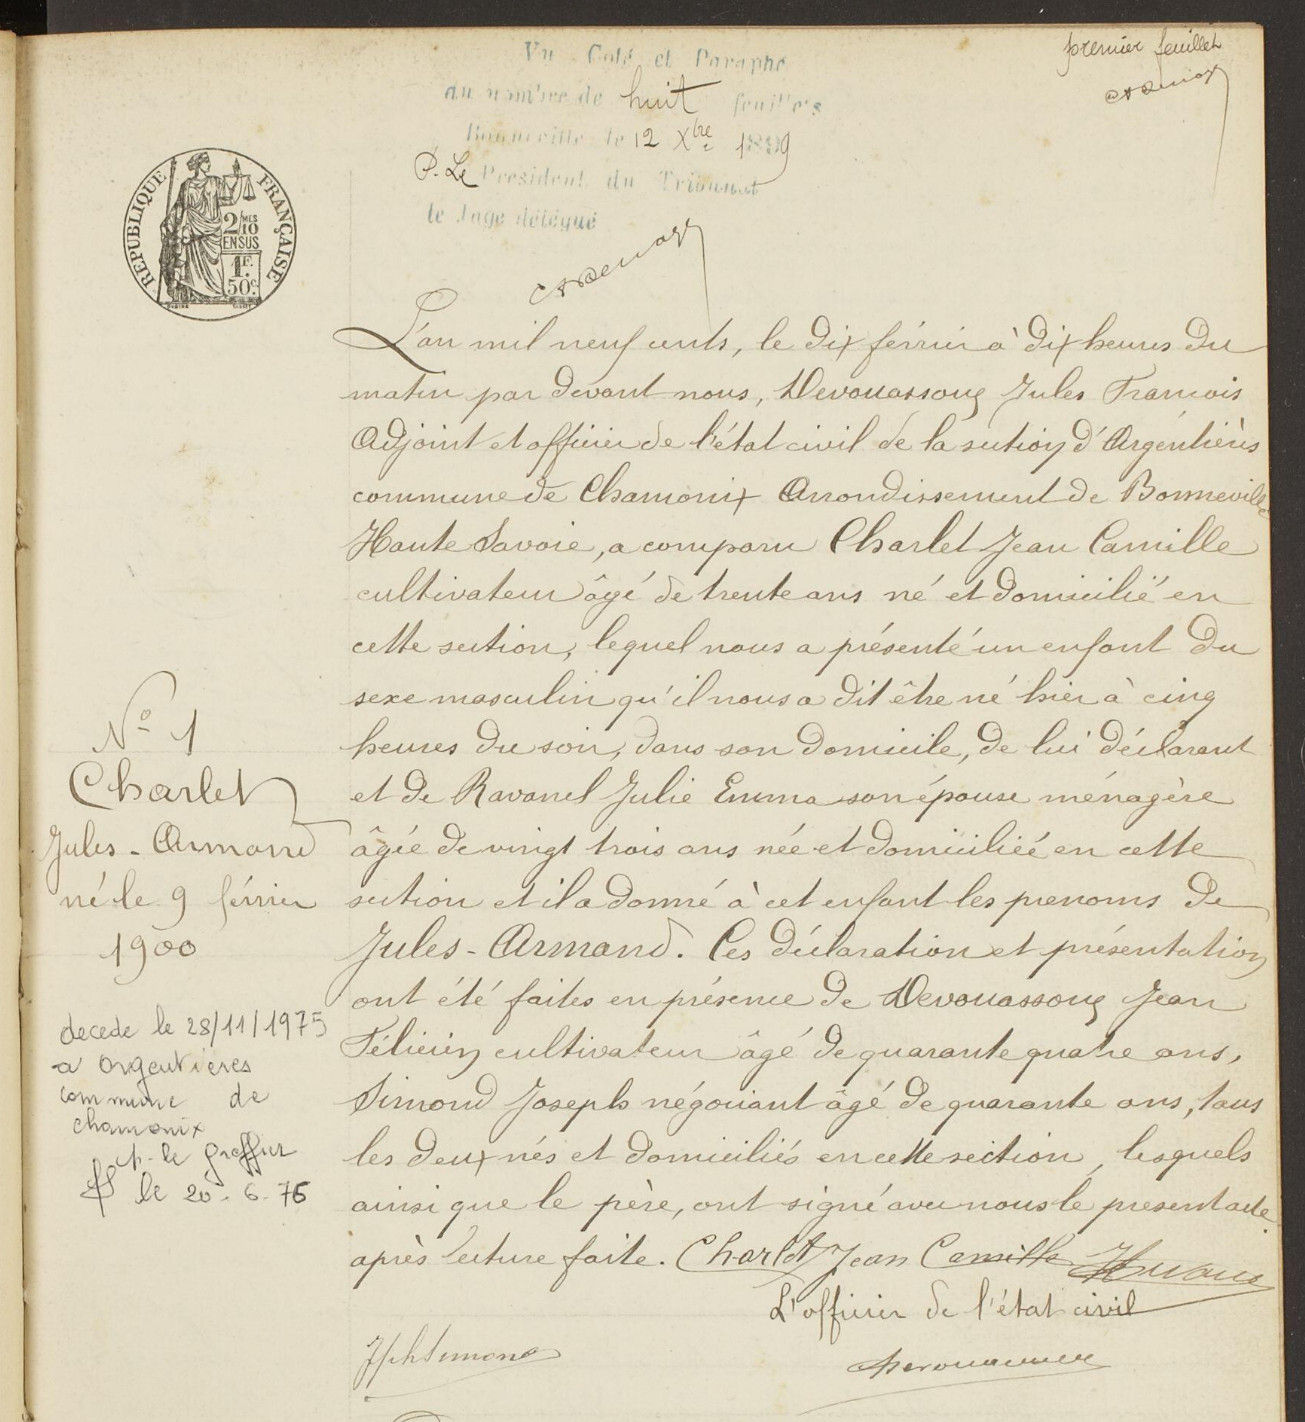 premier feuillet
Vu Coté et Paraphé
au nombre de huit feuillets
Bonneville le 12 Xbre 1899
P. Le Président du Tribunal
le Juge délégué
REPUBLIQUE FRANÇAISE
2/MES
10
EN SUS
1F.
50c.
L'an mil neuf cents, le dix février à dix heures du
matin par devant nous, Devouassoux Jules François
Adjoint et officier de l'état civil de la section d'Argentières
commune de Chamonix Arrondissement de Bonneville
Haute Savoie, a comparu Charlet Jean Camille
cultivateur âgé de trente ans né et domicilié en
cette section, lequel nous a présenté un enfant du
sexe masculin qu'il nous a dit être né hier à cinq
heures du soir, dans son domicile, de lui déclarant
et de Ravanel Julie Emma son épouse ménagère
âgée de vingt trois ans née et domiciliée en cette
section et il a donné à cet enfant les prenoms de
Jules-Armand. Ces déclaration et présentation
ont été faites en présence de Devouassoux Jean
Félicien cultivateur âgé de quarante quatre ans,
Simond Joseph négociant âgé de quarante ans, tous
les deux nés et domiciliés en cette section, lesquels
ainsi que le père, ont signé avec nous le present acte
après lecture faite. Charlet Jean Camille
L'officier de l'état civil
Jph Simond
Devouassoux
No 1
Charlet
Jules-Armand
né le 9 février
1900
decede le 28/11/1975
a Argentieres
commune de
chamonix
p. le greffier
le 20-6-76